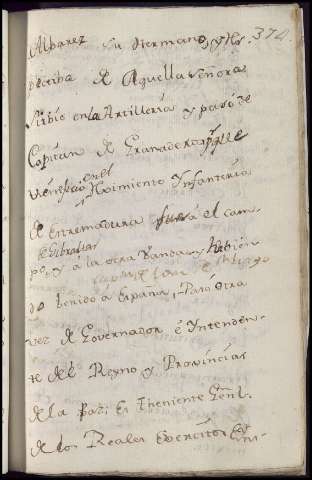 Albarez su Hermano, y Hr. 374.
de aquella señora
Sirbio en la Artilleria y pasó de
Capitan de Granaderos que
en el
Rexmiento Ynfanteria
de Extremadura fue á el cam-
de Gibraltar
po, y á la otra vanda, y Habien
do benido á España, Pasó otra
vez de Governador é Yntenden-
te del Reyno y Provincias
de la Paz: Es Theniente Genl.
de los Reales Exercitos